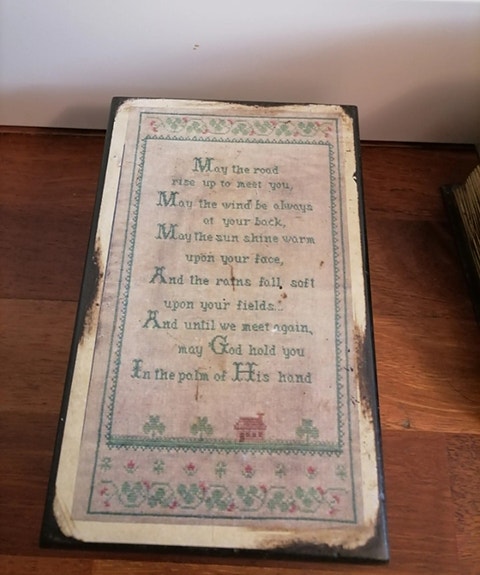 May the road
rise up to meet you,
May the wind be always
at your back,
May the sun shine warm
upon your face,
And the rains fall soft
upon your fields.
And until we meet again,
may God hold you
In the palm of His hand